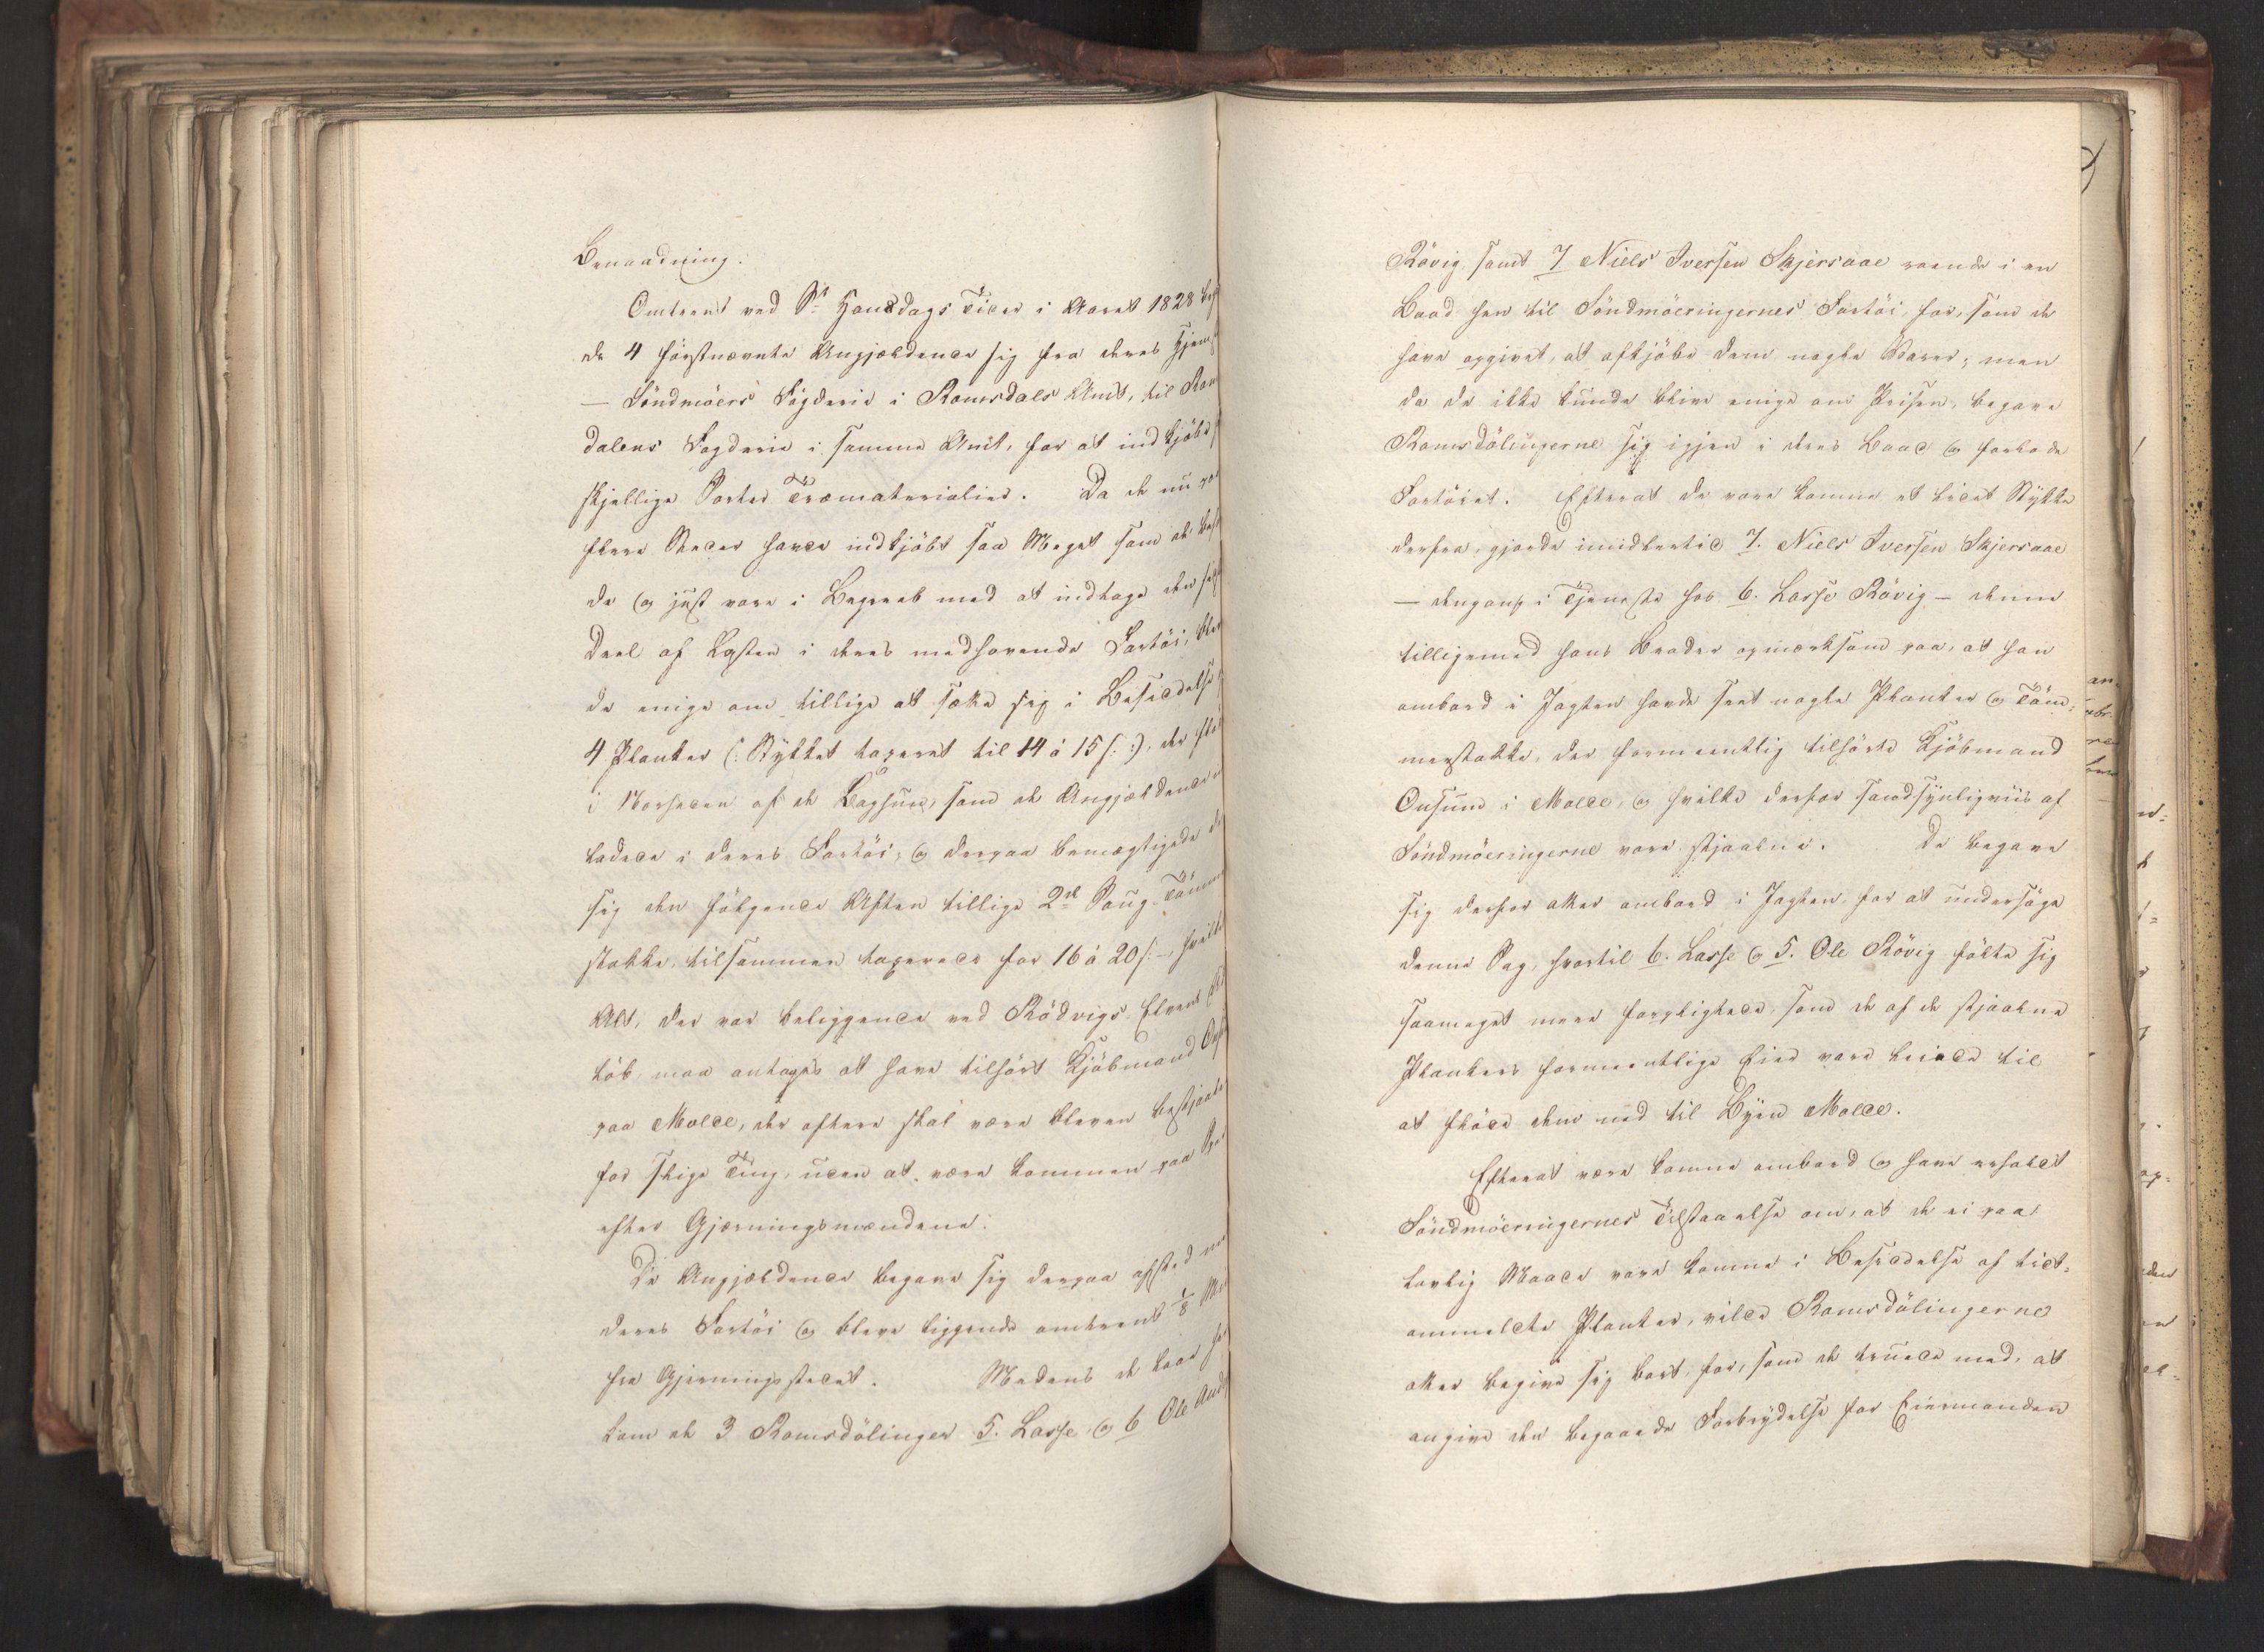 Benaadning.
Omtrent ved St Hansdags Tider i Aaret 1828
de 4 førstnævnte Angjældende sig fra deres Hjem
— Søndmøers Fogderie i Romsdals Amt, til Rom
dalens Fogderie i samme Amt, for at indkjøbe
skjellige Sorter Træmaterialier. Da de nu
flere Steder havde indkjøbt saa Meget som de
de og just vare i Begreb med at indtage den
Deel af Lasten i deres medhavende Fartøi,
de enige om tillige at sætte sig i Besiddelse
4 Planker (: Stykket taxeret til 14 à 15 s :), der
i Nærheden af de Baghun, som de Angjældende
ladede i deres Fartøi, og derpaa bemægtigede
sig den følgende Aften tillige 2de Saug-Tømmer
stokke, tilsammen taxerede for 16 à 20 s –
Alt, der var beliggende ved Rødvigs Elvens
løb, maa antages at have tilhørt Kjøbmand
paa Molde, der oftere skal være bleven bestjaalet
for slige Ting, uden at være kommen paa Spor
efter Gjerningsmændene.
De Angjældende begave sig derpaa afsted
deres Fartøi og bleve liggende omtrent 1/8
fra Gjerningsstedet. Medens de laae
kom de 3 Romsdølinger 5. Lasse, og 6 Ole
Rövig samt 7 Niels Iversen Skjersaae roende i en
Baad hen til Söndmöeringernes Fartöi, for, som de
have opgivet, at afkjöbe dem nogle Varer; men
da de ikke kunde blive enige om Prisen, begave
Romsdölingerne sig igjen i deres Baad og forlode
Fartöiet. Efterat de vare komne et lidet Stykke
derfra, gjorde imidlertid 7. Niels Iversen Skjersaae
— dengang i Tjeneste hos 6. Lasse Rövig – denne
tilligemed hans Broder opmærksom paa, at han
ombord i Jagten havde seet nogle Planker og Töm-
merstokke, der formeentlig tilhørte Kjöbmand
Onsum i Molde, og hvilke derfor sandsynligviis af
Söndmöeringerne vare stjaalne. De begave
sig derfor atter ombord i Jagten for at undersöge
denne Sag, hvortil 6. Lasse og 5. Ole Rövig følte sig
saameget mere forpligtede, som de af de stjaalne
Plankers formeentlige Eier vare leiede til
at flöde dem ned til Byen Molde.
Efterat være komne ombord og have erholdt
Söndmöeringernes Tilstaaelse om, at de ei paa
lovlig Maade vare komne i Besiddelse af tidt-
ommeldte Planker, vilde Romsdölingerne
atter begive sig bort, for, som de truede med, at
angive den begaaede Forbrydelse for Eiermanden